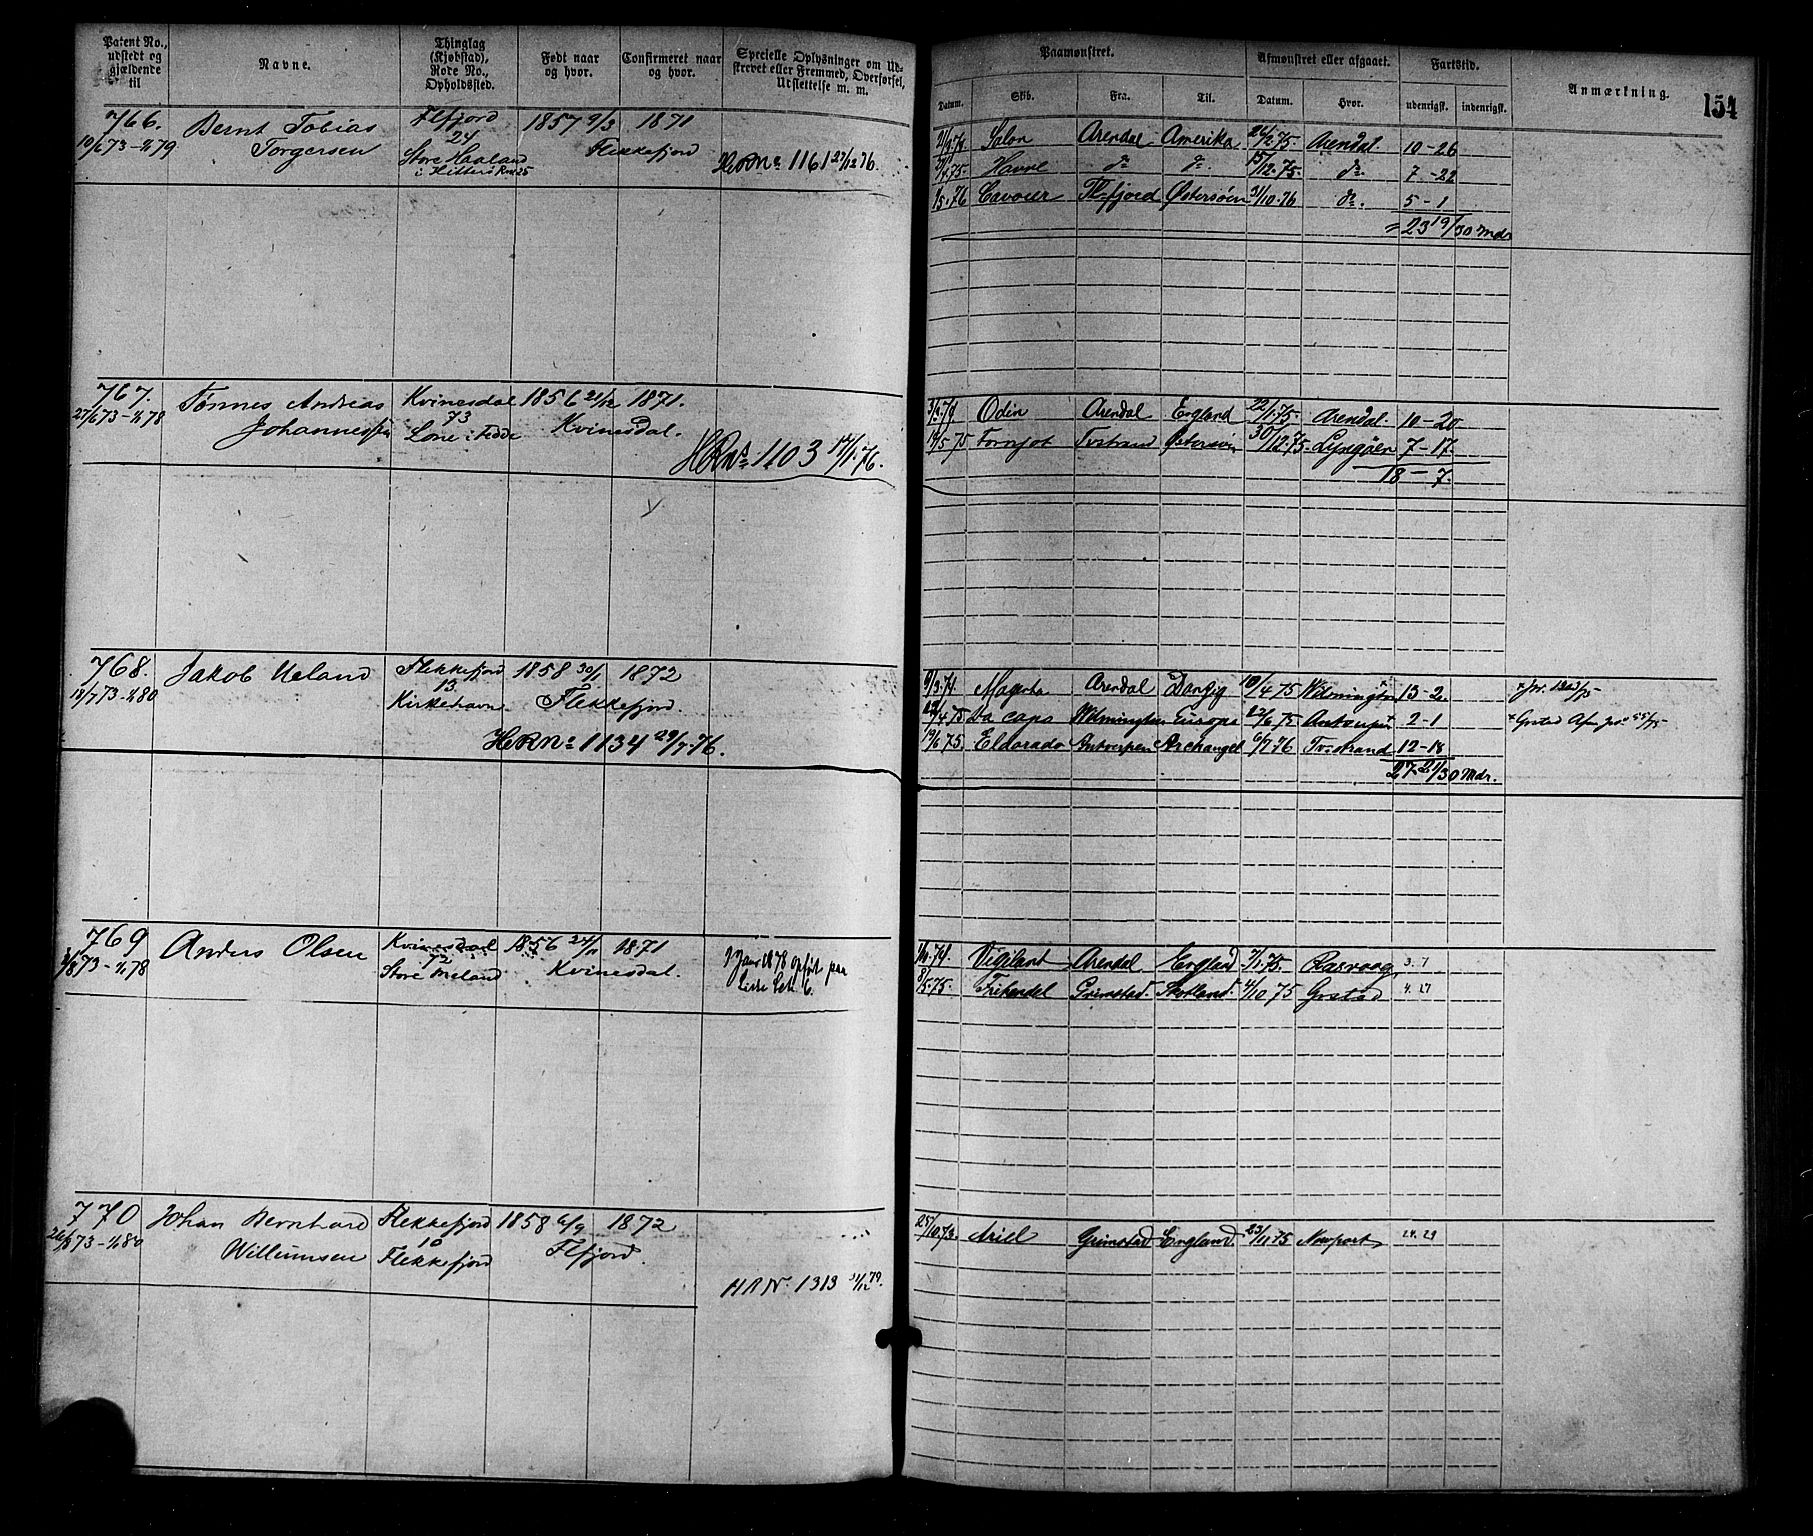 Patent No., udstedt og gjældende til
Navne.
Thinglag (Kjøbstad), Rode No., Opholdssted.
Født naar og hvor.
Confirmeret naar og hvor.
Specielle Oplysninger om Udskrevet eller Fremmed, Overførsel, Udslettelse m. m.
Paamønstret.
Afmønstret eller afgaaet.
Fartstid.
Anmærkning.
154
Datum.
Skib.
Fra.
Til.
Datum.
Hvor.
udenrigsk.
indenrigsk.
766. Bernt Tobias Flfjord 1857 9/3 1871
24
19/6 73 - 1/1 79 Torgersen Store Haaland Flekkefjord HRNo 1161 27/12 76.
i Hitterø Rno 25
Salon Arendal Amerika 26/2 75. Arendal 10-26
Havre do do. 15/12.75. do. 7-22
1/5.76 Cavour Fl.fjord Østersøen 31/10.76 do. 5-1
= 23 19/30 Mdr
767. Tønnes Andreas Kvinesdal 1856 21/12 1871.
73
27/6 73 - 1/1 78 Johannessen Lone i Fedde Kvinesdal.
HRNo 1103 17/1.76.
Odin Arendal England 22/1.75. Arendal. 10-20
19/5.75 Fornjot Tvstrand Østersøen 30/12.75. Lyngøen 7-17.
18-7.
768. Jakob Ueland Flekkefjord 1858 30/1 1872
13.
18/7 73 - 1/1 80 Kirkehavn Flekkefjord.
HRNo 1134 29/7.76.
9/3.74 Arendal Danzig 10/4 75 Wilmington 13-2.
22/4.75 Da capo Wilmington Europa 22/6 75 Antwerpen 2-1
19/6 75. Eldorado Antwerpen Archangel 6/7.76 Tvstrand 12-18
27-21/30 Mdr.
769 Anders Olsen Kvinesdal 1856 24/11 1871
72
2/8 73 - 1/1 78 Store Meland Kvinesdal.
Januar 1878 opført paa
Vigilant Arendal England 7/1.75. Rasvaag 3.7
8/5.75. Frihandel Grimstad. Skotland. 4/10 75 Grstad 4.27
770 Johan Bernhard Flekkefjord 1858 6/9 1872
10
26/8 73 - 1/1 80 Willumsen Flekkefjord Flfjord.
HRN. 1313 31/12 79.
25/10.73. Ariel Grimstad England. 23/11.75 Newport 24.29